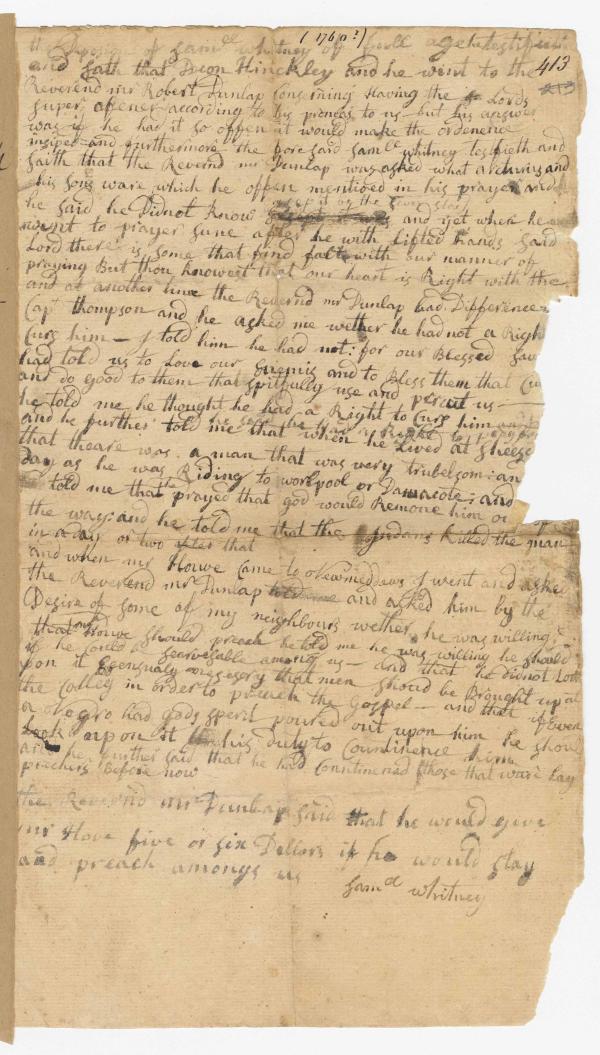 (1760?)
the Deposion of Saml whitney of full age testifieth
and sath that Decon Hinckley and he went to the
413
Reverend mr Robert Dunlap Conserning Having the Lords
super oftener according to his promeas to us but his answer
was if he had it so offen it would make the ordenence
insiped and furthermore the fore said Saml whitney testifieth and
saith that the Reverend mr Dunlap was asked what and
his sons ware which he offen mentioned in his prayer and
he said he Did not know and yet when he
went to prayer sune after he with Lifted hands said
Lord there is some that find falt with our manner of
praying But thou knowest that our heart is Right with the
and at another time the Reverend mr Dunlap had Difference
Capt thompson and he asked me wether he had not a Righ
Curs him — I told him he had not: for our Blessed Sav
had told us to Love our Enemis and to Bless them that Cu
and do good to them that spitfully use and us —
he told me he thought he had a Right to Curs him
and he further told me that when he Lived at Sheeps
that theare was a man that was very trubelsom: an
day as he was Riding to worlpool or Damacote: and
told me that he prayed that god would Remove him or
the way: and he told me that the Indans killed the man
in a day or two after that
and when mr Houwe Came to Newmeddows I went and asked
the Reverend mr Dunlap and asked him by the
Desire of some of my neighbours wether he was willing
that Houwe should preach he told me he was willing he should
if he could be Servesable among us — and that he Did not Look
pon it Essensualy nessesery that men should be Brought up at
the Colleg in order to preach the Gospel — and that if Even
a Negro had gods sperit poured out upon him he shoul
Look upon it his duty to Countinence him
and he further said that he had Countinenced those that ware Lay
preachers Before now
the Reverend mr Dunlap said that he would give
mr Hove five or six Dollers if he would stay
and preach amongs us
Saml whitney